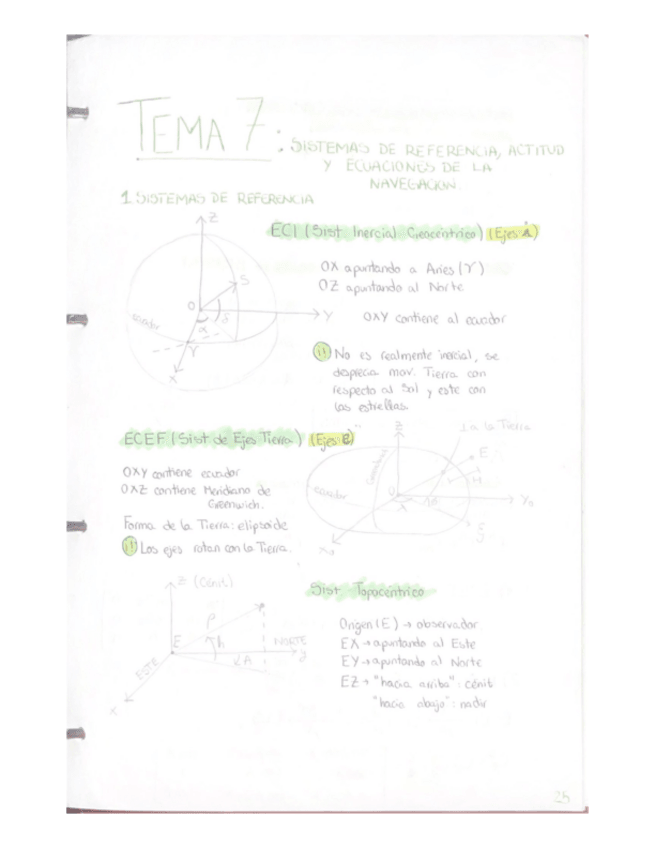 TEMA 7: SISTEMAS DE REFERENCIA, ACTITUD
Y ECUACIONES DE LA
NAVEGACION.
1. SISTEMAS DE REFERENCIA
Z
ECI (Sist Inercial Geocéntrico) (Ejes A)
OX apuntando a Aries (♈)
OZ apuntando al Norte
S
O
δ
α
Y
OXY contiene al ecuador
ecuador
♈
X
!! No es realmente inercial, se
desprecia mov. Tierra con
respecto al Sol y este con
las estrellas.
ECEF (Sist de Ejes Tierra) (Ejes E)
Z
⊥ a la Tierra
OXY contiene ecuador
OXZ contiene Meridiano de
Greenwich.
Forma de la Tierra: elipsoide
!! Los ejes rotan con la Tierra.
E
H
ecuador
O
Z (Cénit)
Sist. Topocéntrico
ρ
Origen (E) → observador
E
h
NORTE
y
A
ESTE
x
EX → apuntando al Este
EY → apuntando al Norte
EZ → "hacia arriba": cénit
"hacia abajo": nadir
25